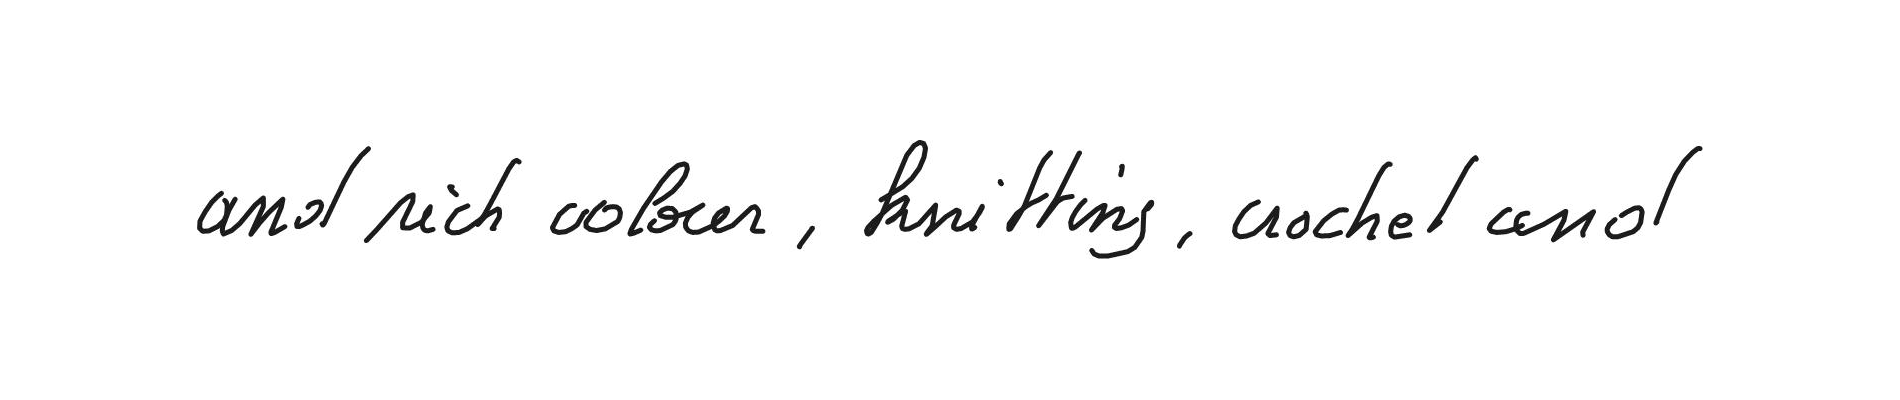 and rich colour, knitting, crochet and